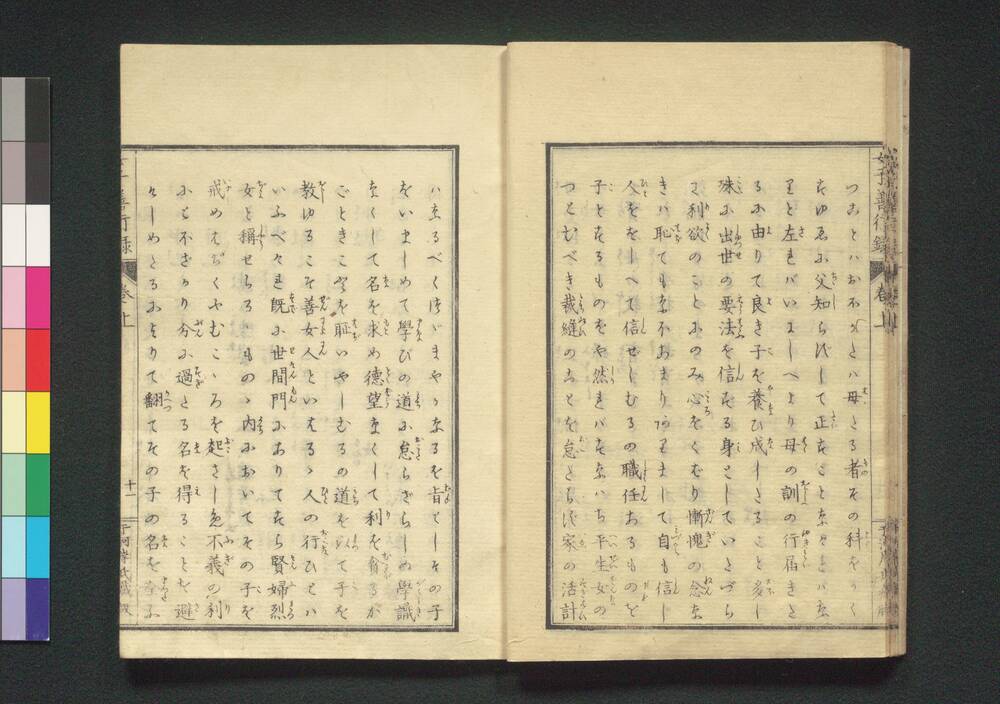 つることハおほかたハ母たる者その科をかく
すゆゑに父知らずして正すことなきとハな
りと左れバいにしへより母の訓の行届きた
るに由りて良き子を養ひ成したること多し
殊に出世の要法を信ずる身としていたづら
に利欲のことにのみ心をくだり慚愧の念な
きハ恥てもなほあまりありまして自も信し
人ををしへて信ぜしむるの職任あるものを
子とするものをや然れバすなハち平生女の
つとむべき裁縫のことを怠たらず家の活計
ハなるべくつづまやかなるを旨としその子
をいましめて學びの道に怠らざらしめ學識
なくして名を求め德望なくして利を貪るが
ごときこゝろを耻いやしむるの道を以て子を
教ゆるこそ善女人といはるゝ人の行ひとハ
いふべけれ既に世間門にありてすら賢婦烈
女と稱せらるゝもの、内においてその子を
戒めはげむこゝろを起さしめ不義の利
にとほざかり分に過たる名を得ることを避
けしめたるによりて翻てその子の名を
女子善行錄
卷上
十一